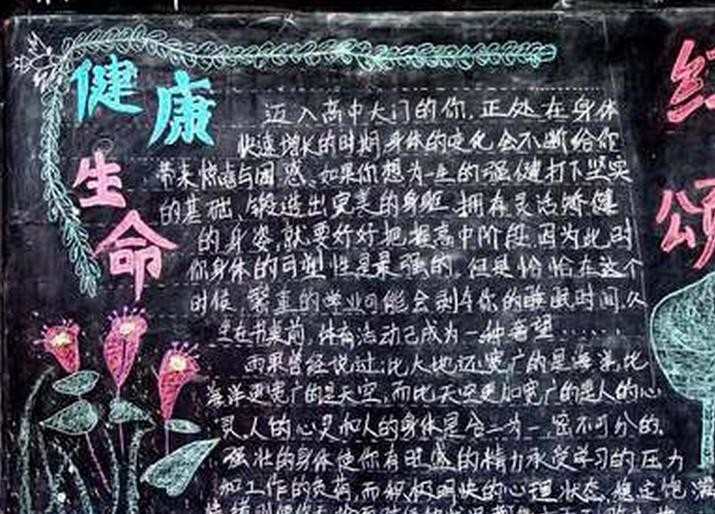 健康
生命
迈入高中大门的你,正处在身体
快速增长的时期,身体的变化会不断给你
带来惊喜与困惑。如果你想为一生的强健打下坚实
的基础、锻造出完美的身躯、拥有灵活矫健
的身姿,就要好好把握高中阶段,因为此时
你身体的可塑性是最强的。但是恰恰在这个
时候,繁重的学业可能会剥夺你的睡眠时间,久
坐在书桌前,体育活动已成为一种奢望……
雨果曾经说过:比大地还宽广的是海洋,比
海洋更宽广的是天空,而比天空更加宽广的是人的心
灵。人的心灵和人的身体是合二为一、密不可分的。
强壮的身体使你有旺盛的精力承受学习的压力
和工作的负荷,而积极明快的心理状态、稳定饱满
红
颂